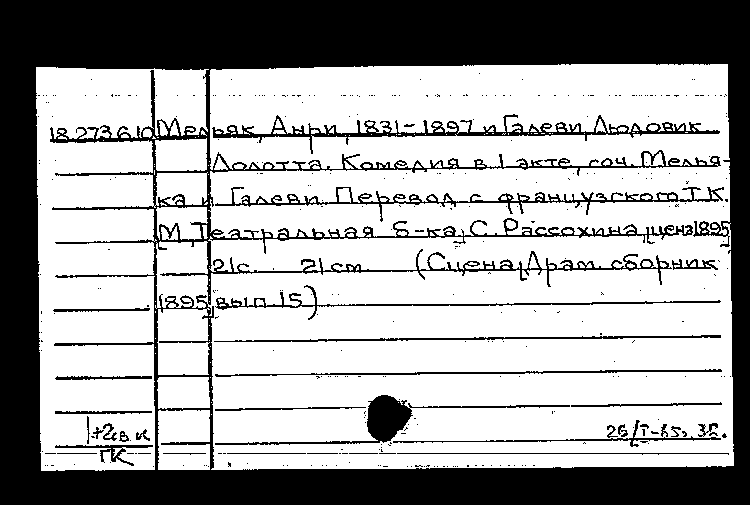 18.273.6.10 Мельяк, Анри, 1831-1897 и Галеви, Людовик
Лолотта. Комедия в 1 акте, соч. Мелья-
ка и Галеви. Перевод с французского Т.К.
М., Театральная б-ка С. Рассохина, ценз. 1895
21с. 21см. (Сцена. Драм. сборник
1895, вып. 15)
1+2св. к
ГК